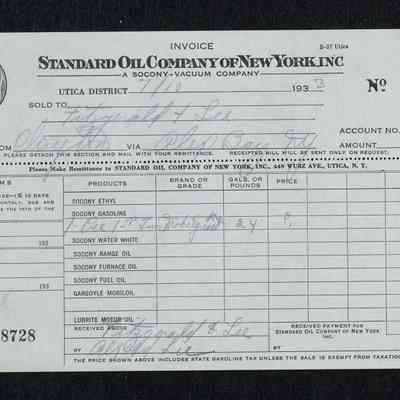 INVOICE
B-37 Utica
STANDARD OIL COMPANY OF NEW YORK, INC
A SOCONY-VACUUM COMPANY
UTICA DISTRICT 7/10 1933 No
SOLD TO
Fitzgerald & Lee
ACCOUNT NO.
OM VIA AMOUNT
PLEASE DETACH THIS SECTION AND MAIL WITH YOUR REMITTANCE. RECEIPTED BILL WILL BE SENT ONLY ON REQUEST.
Please Make Remittance to STANDARD OIL COMPANY OF NEW YORK, INC., 449 WURZ AVE., UTICA, N. Y.
PRODUCTS BRAND OR GRADE GALS. OR POUNDS PRICE
SOCONY ETHYL
SOCONY GASOLINE
24
SOCONY WATER WHITE
193
SOCONY RANGE OIL
SOCONY FURNACE OIL
SOCONY FUEL OIL
193
GARGOYLE MOBILOIL
LUBRITE MOTOR OIL
8728
RECEIVED ABOVE
RECEIVED PAYMENT FOR
STANDARD OIL COMPANY OF NEW YORK
INC.
BY
BY
THE PRICE SHOWN ABOVE INCLUDES STATE GASOLINE TAX UNLESS THE SALE IS EXEMPT FROM TAXATION